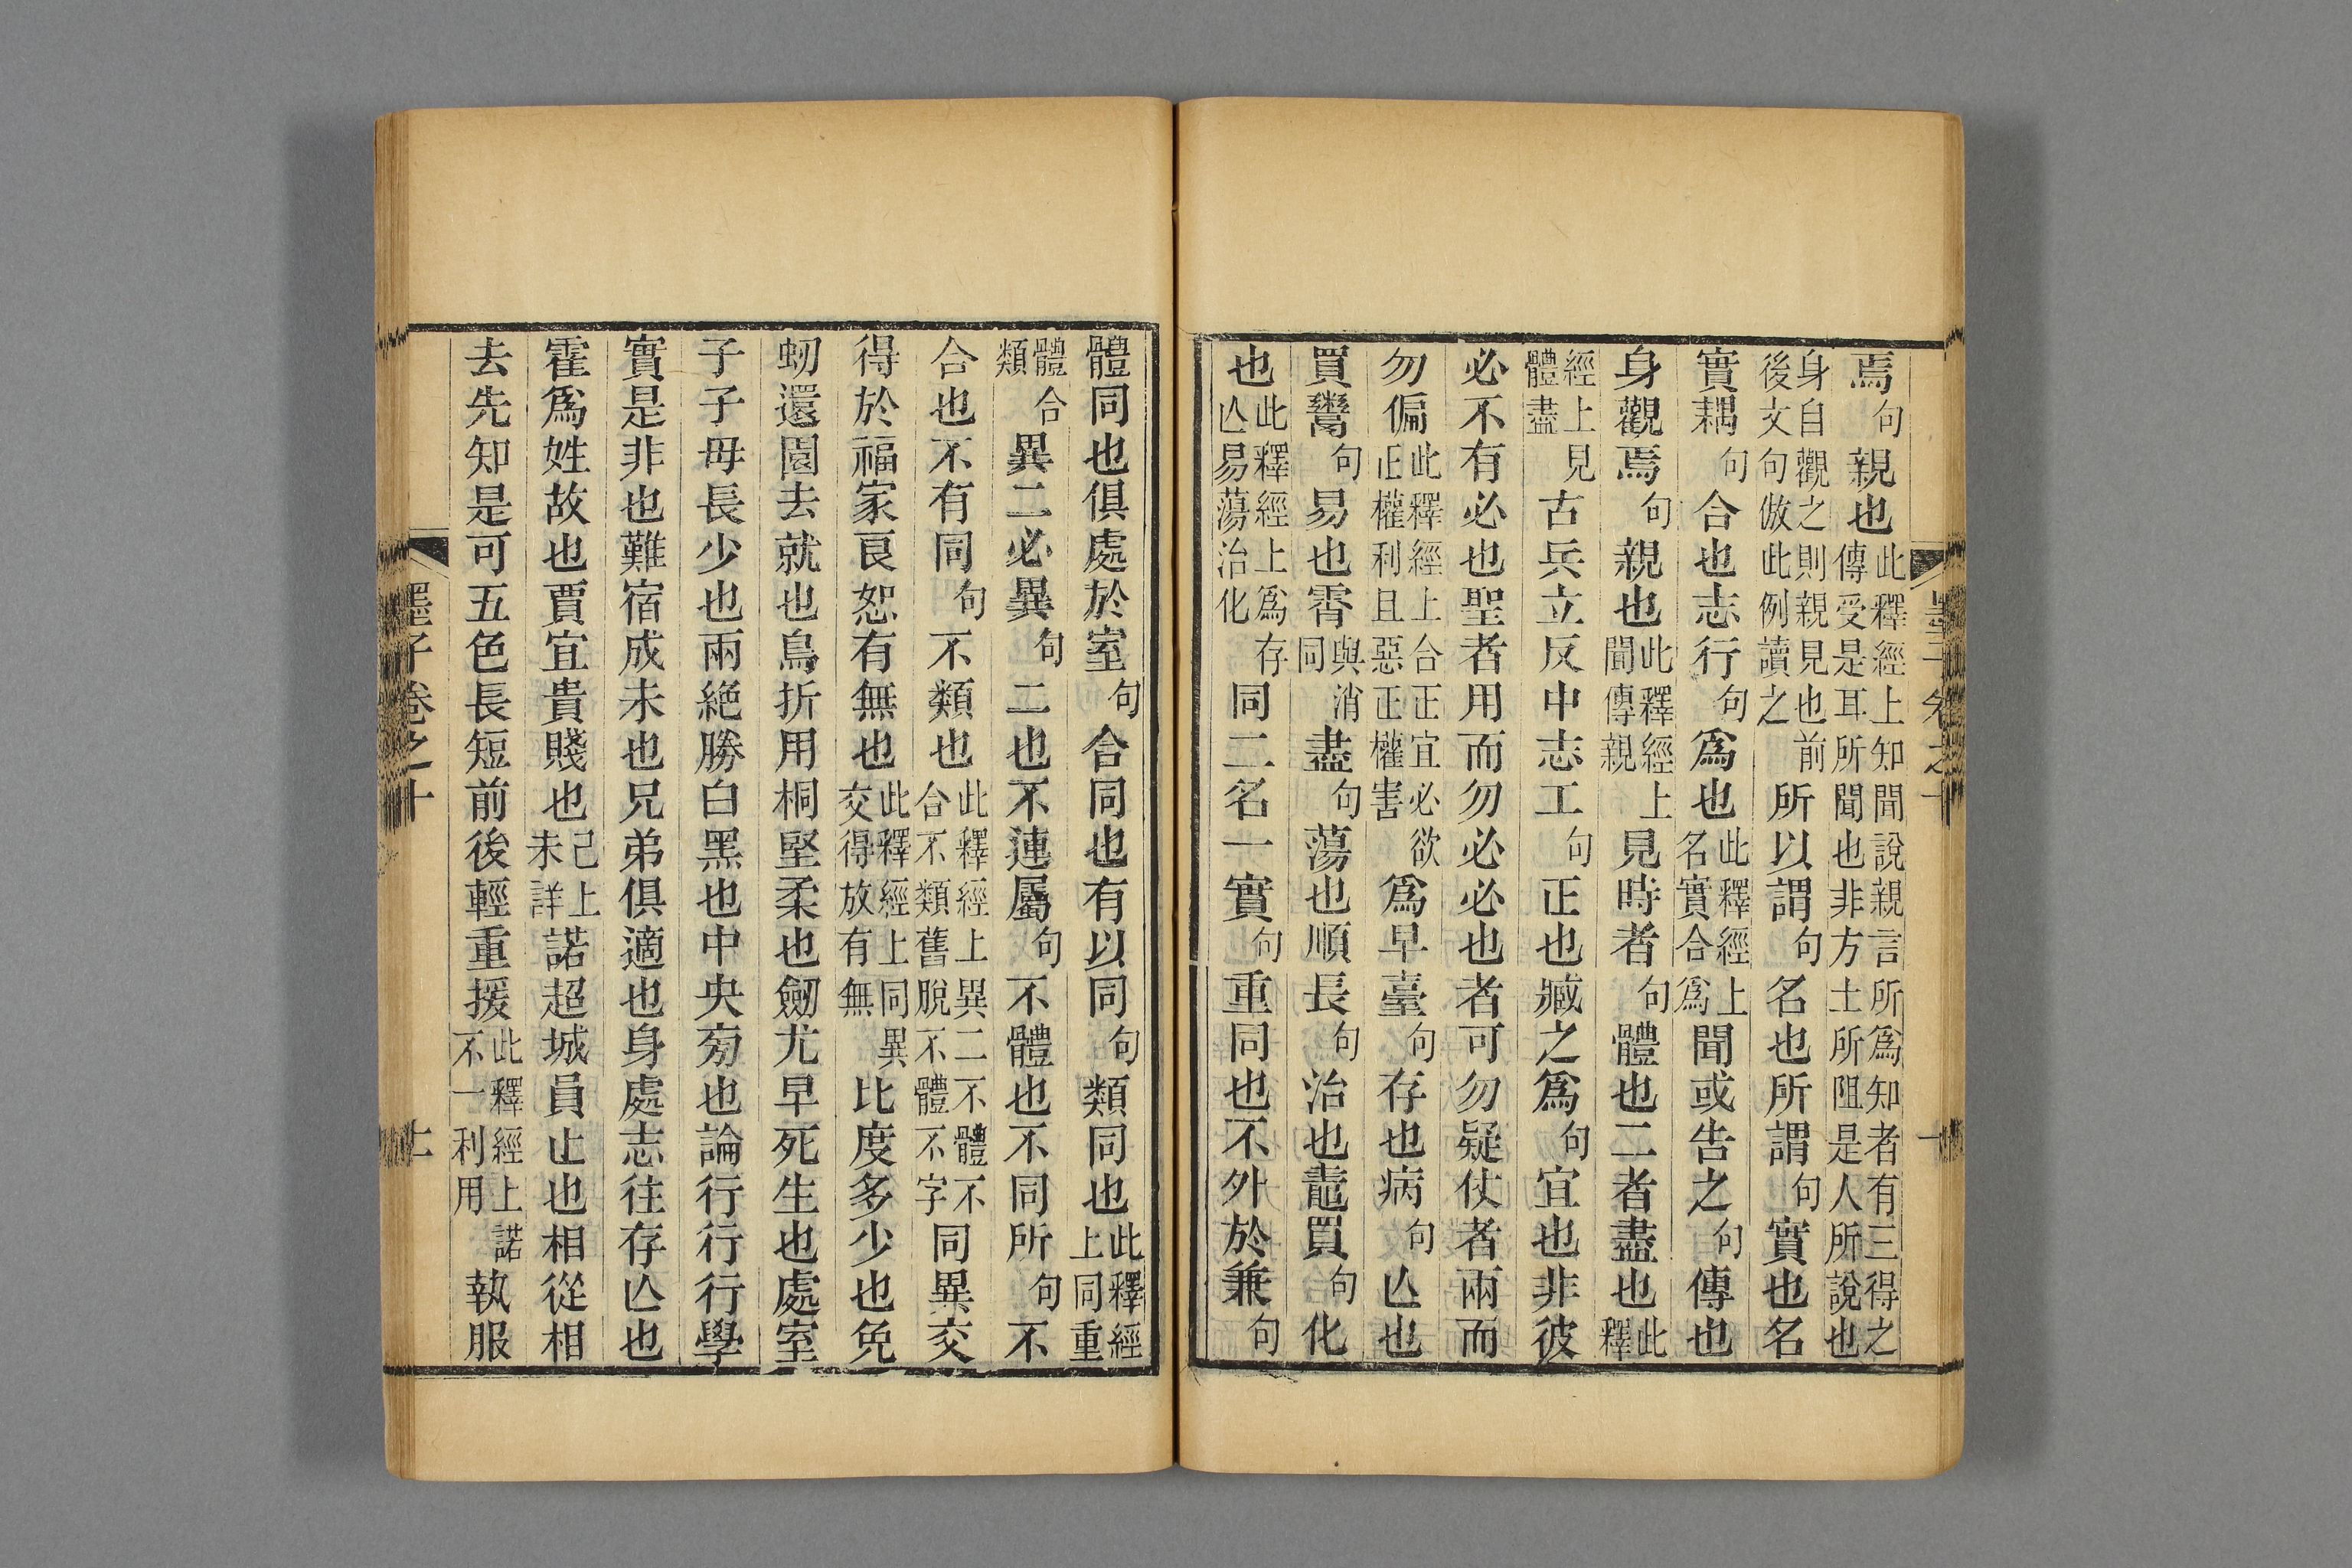 焉句親也此釋經上知聞說親言所爲知者有三得之傳受是耳所聞也非方土所阻是人所說也
身自觀之則親見也前後文句倣此例讀之所以謂句名也所謂句實也名
實耦句合也志行句爲也此釋經上名實合爲聞或告之句傳也
身觀焉句親也此釋經上聞傳親見時者句體也二者盡也此釋
經上見體盡古兵立反中志工句正也臧之爲句宜也非彼
必不有必也聖者用而勿必必也者可勿疑仗者兩而
勿偏此釋經上合正宜必欲正權利且惡正權害爲早臺句存也病句亾也
買鬻句易也霄與消同盡句蕩也順長句治也鼃買句化
也此釋經上爲存亾易蕩治化同二名一實句重同也不外於兼句
體同也俱處於室句合同也有以同句類同也此釋經上同重
體合類異二必異句二也不連屬句不體也不同所句不
合也不有同句不類也此釋經上異二不體不合不類舊脫不體不字同異交
得於福家良恕有無也此釋經上同異交得放有無比度多少也免
蚓還園去就也鳥折用桐堅柔也劒尤早死生也處室
子子母長少也兩絶勝白黑也中央旁也論行行行學
實是非也難宿成未也兄弟俱適也身處志往存亾也
霍爲姓故也賈宜貴賤也己上未詳諾超城員止也相從相
去先知是可五色長短前後輕重援此釋經上諾不一利用執服
墨子卷之十
十一